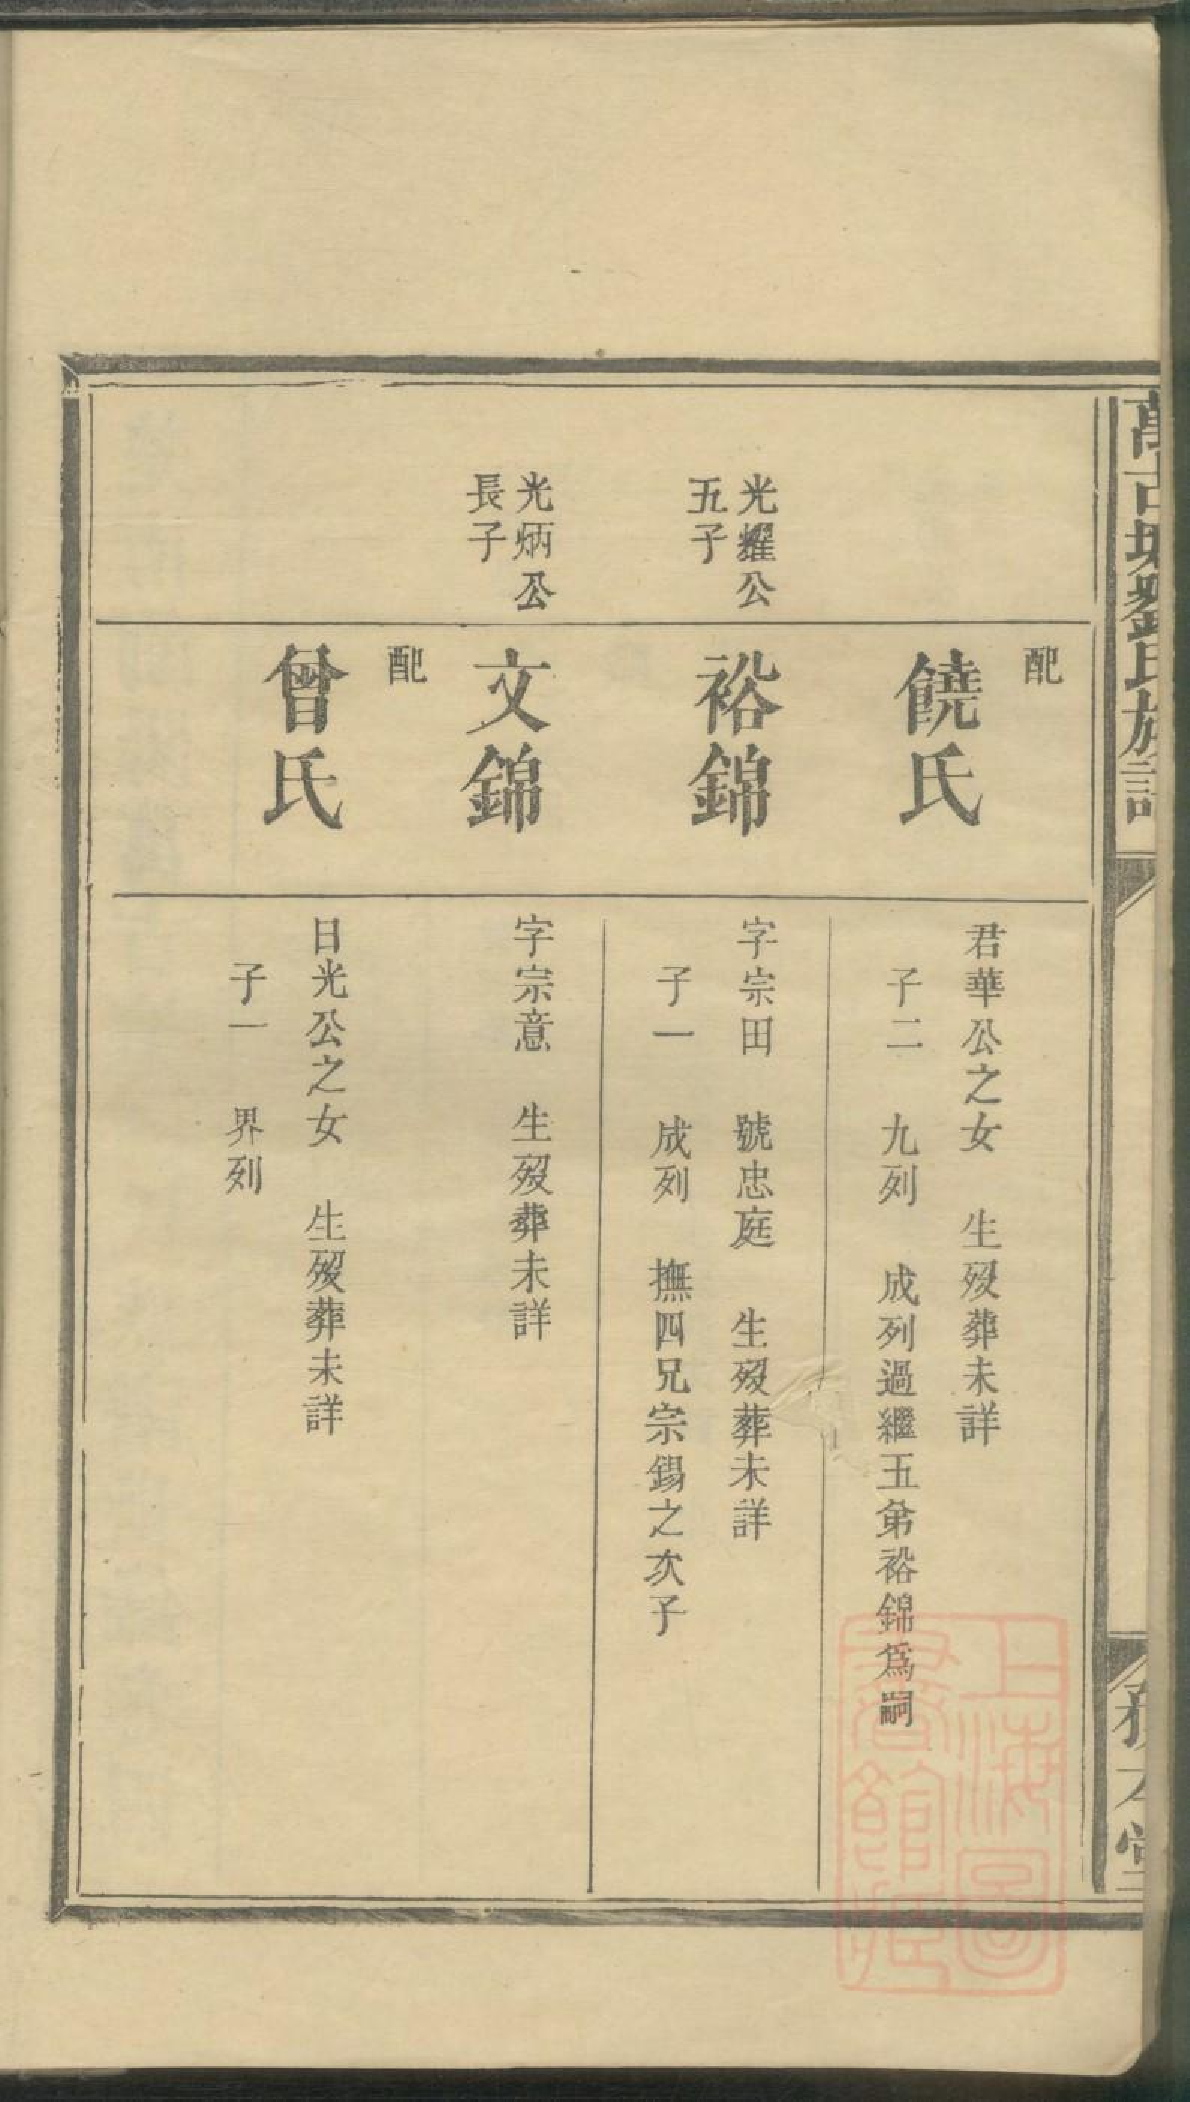 萬古城劉氏族譜
務本堂
配
饒氏
君華公之女 生歿葬未詳
子二 九列 成列過繼五弟裕錦爲嗣
光耀公
五子
裕錦
字宗田 號忠庭 生歿葬未詳
子一 成列 撫四兄宗錫之次子
光炳公
長子
文錦
字宗意 生歿葬未詳
配
曾氏
日光公之女 生歿葬未詳
子一 界列
上海圖
書館藏